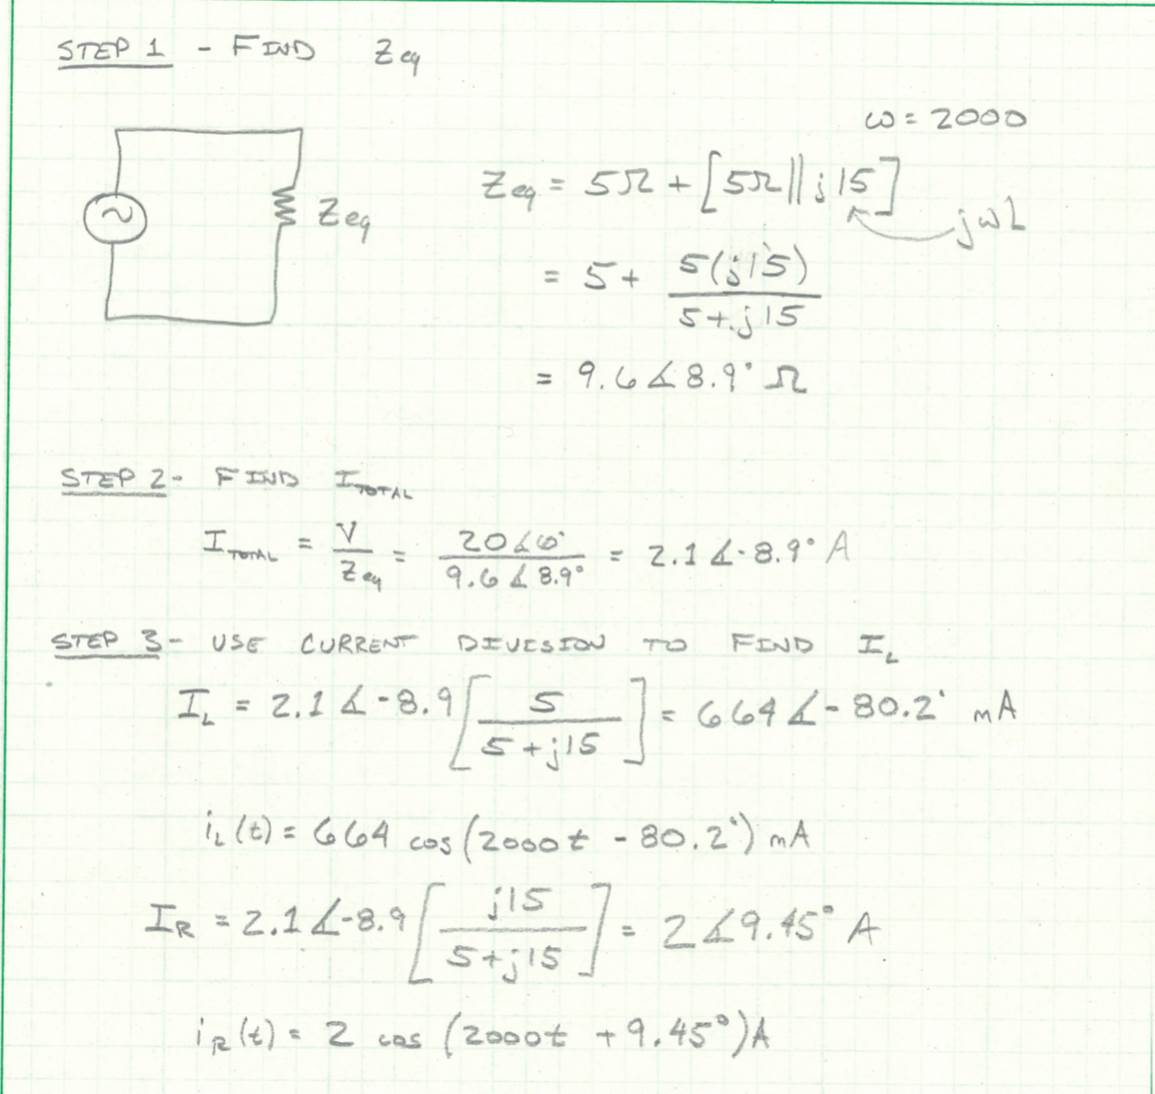 STEP 1 - FIND Zeq
ω = 2000
Zeq
Zeq = 5Ω + [5Ω || j15]
jωL
= 5 + 5(j15) / 5+j15
= 9.6∡8.9° Ω
STEP 2 - FIND I_TOTAL
I_TOTAL = V / Zeq = 20∡0° / 9.6∡8.9° = 2.1∡-8.9° A
STEP 3 - USE CURRENT DIVISION TO FIND I_L
I_L = 2.1∡-8.9 [5 / 5+j15] = 664∡-80.2° mA
i_L(t) = 664 cos(2000t - 80.2°) mA
I_R = 2.1∡-8.9 [j15 / 5+j15] = 2∡9.45° A
i_R(t) = 2 cos (2000t + 9.45°)A